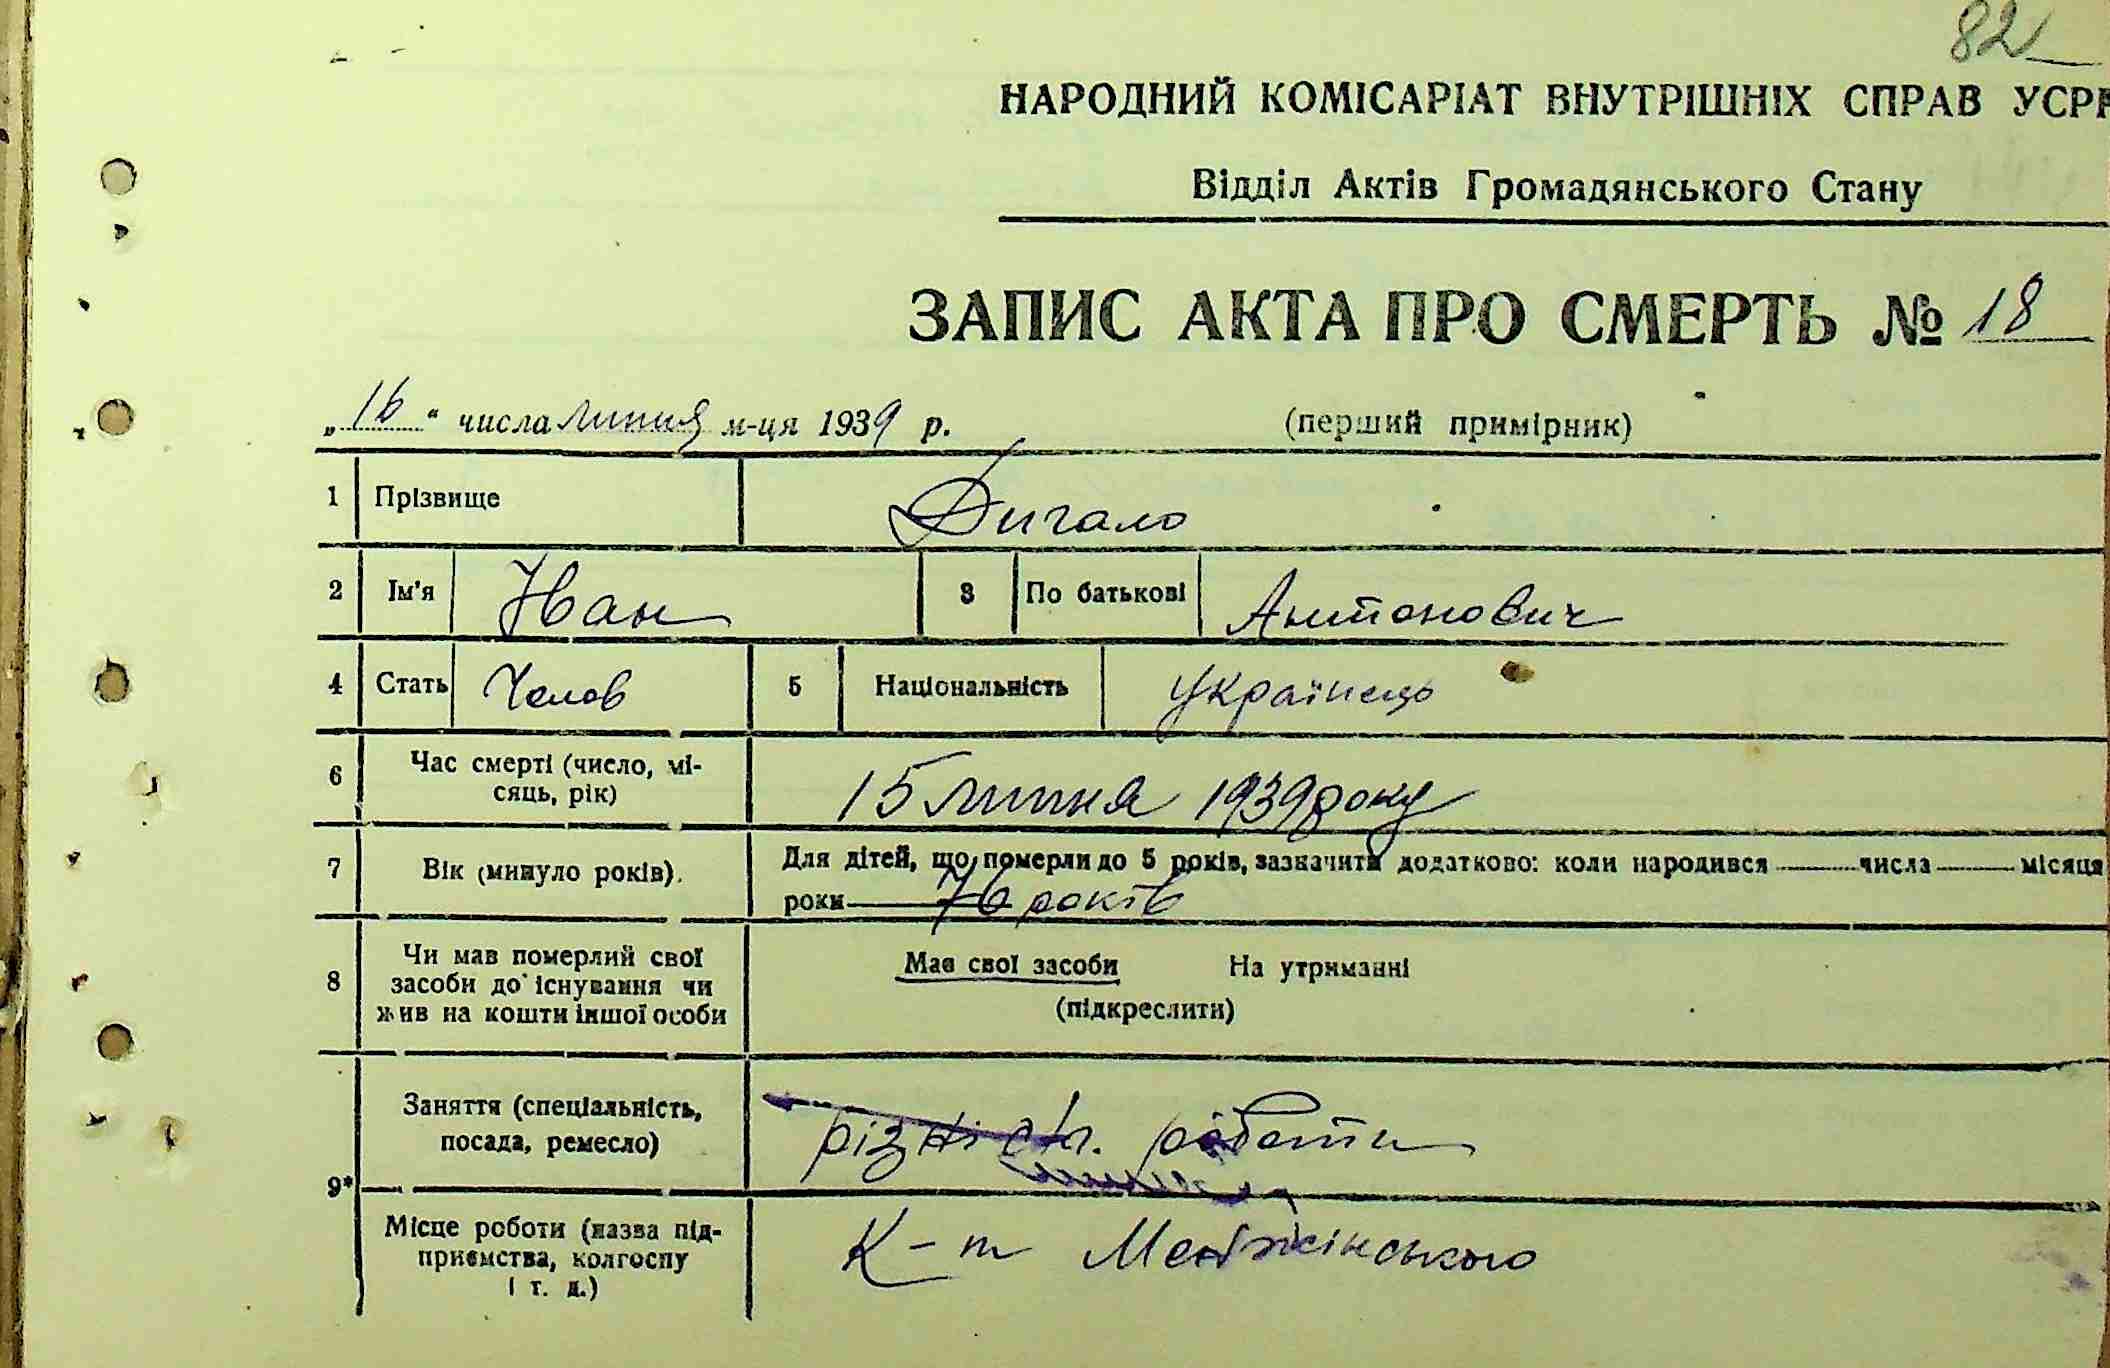 82
НАРОДНИЙ КОМІСАРІАТ ВНУТРІШНІХ СПРАВ УСРР
Відділ Актів Громадянського Стану
ЗАПИС АКТА ПРО СМЕРТЬ № 18
„16“ числа липня м-ця 1939 р. (перший примірник)
1 Прізвище Дигало
2 Ім'я Иван 3 По батькові Антонович
4 Стать Чолов 5 Національність Українець
6 Час смерті (число, мі-
сяць, рік) 15 липня 1939 року
7 Вік (минуло років). Для дітей, що померли до 5 років, зазначити додатково: коли народився числа місяця
роки 76 років
8 Чи мав померлий свої
засоби до існування чи
жив на кошти іншої особи
Мав свої засоби На утриманні
(підкреслити)
9* Заняття (спеціальність,
посада, ремесло) різні с/г. роботи
Місце роботи (назва під-
приємства, колгоспу
і т. д.) К-п Менжінського